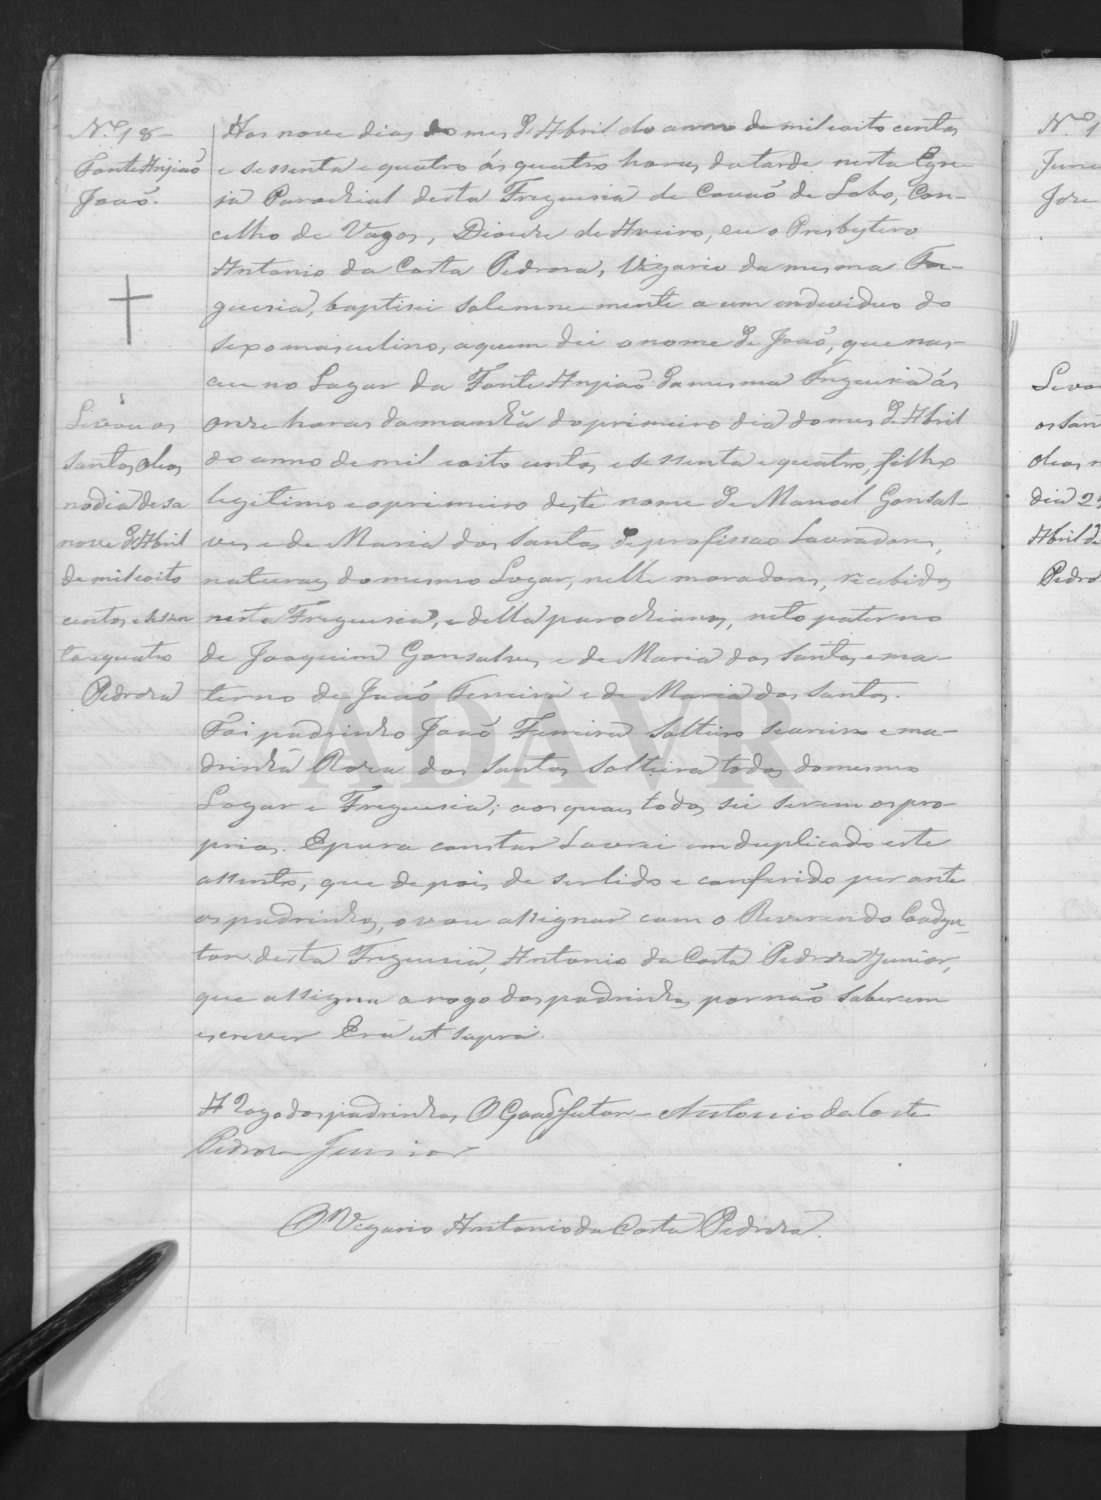 N.º 18
Fonte Anjiaõ
Joaõ.
Levou os
santos oleos
no dia desa
nove d'Abril
de mil oito
centos e sessen
ta e quatro
Pedroza
Aos nove dias do mes d'Abril do anno de mil eoito centos
e sessenta e quatro ás quatro horas da tarde nesta Egre-
ja Parochial desta Freguesia de Covaõ de Lobo, Con-
celho de Vagos, Diocese de Aveiro, eu o Presbytero
Antonio da Costa Pedroza, Vigario da mesma Fre-
guesia, baptisei solemnemente a um individuo do
sexo masculino, aquem dei o nome de Joaõ, que nas-
ceu no Lugar da Fonte Anjiaõ da mesma Freguesia ás
onze horas da manhã do primeiro dia do mes d'Abril
do anno de mil eoito centos e sessenta e quatro, filho
legitimo e o primeiro deste nome de Manoel Gonsal-
ves e de Maria dos Santos de profissao Lavradores,
naturaes do mesmo Logar, nelle moradores, recebidos
nesta Freguesia, e della parochianos, neto paterno
de Joaquim Gonsalves e de Maria dos Santos e ma-
terno de Joaõ Ferreira e de Maria dos Santos.
Foi padrinho Joaõ Ferreira Solteiro Seareiro e ma-
drinha Roza dos Santos Solteira todos do mesmo
Logar e Freguesia; aos quaes todos sei serem os pro-
prios. E para constar Lavrei em duplicado este
assento, que depois de ser lido e conferido perante
os padrinhos, o vou assignar com o Reverendo Coadju-
tor desta Freguesia, Antonio da Costa Pedroza Junior,
que assigna a rogo dos padrinhos por não saberem
escrever Era ut supra.
A Rogo dos padrinhos O Coadjutor Antonio da Costa
Pedroza Junior
O Vigario Antonio da Costa Pedroza.
ADAVR
N.º 1
Junc
Joze
Levou
os san
oleos n
dia 25
Abril de
Pedro